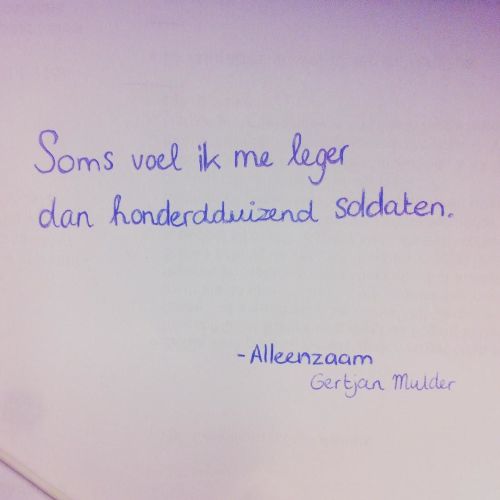 Soms voel ik me leger
dan honderdduizend soldaten.
-Alleenzaam
Gertjan Mulder